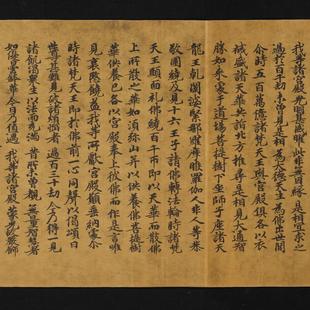 我等諸宮殿 光明甚威曜 此非無因緣 是相宜求之
過於百千劫 未曾見是相 為大德天生 為佛出世間
尒時五百萬億諸梵天王與宮殿俱各以衣
裓盛諸天華共詣北方推尋是相見大通智
勝如來處于道場菩提樹下坐師子座諸天
龍王乾闥婆緊那羅摩睺羅伽人非人等恭
敬圍繞及見十六王子請佛轉法輪時諸梵
天王頭面礼佛繞百千帀即以天華而散佛
上所散之華如須弥山并以供養佛菩提樹
華供養已各以宮殿奉上彼佛而作是言唯
見哀愍饒益我等所獻宮殿願垂納受尒
時諸梵天王即於佛前一心同聲以偈頌曰
世尊甚難見 破諸煩惱者 過百三十劫 今乃得一見
諸飢渴眾生 以法雨充滿 昔所未曾覩 無量智慧者
如優曇鉢華 今日乃值遇 我等諸宮殿 蒙光故嚴飾